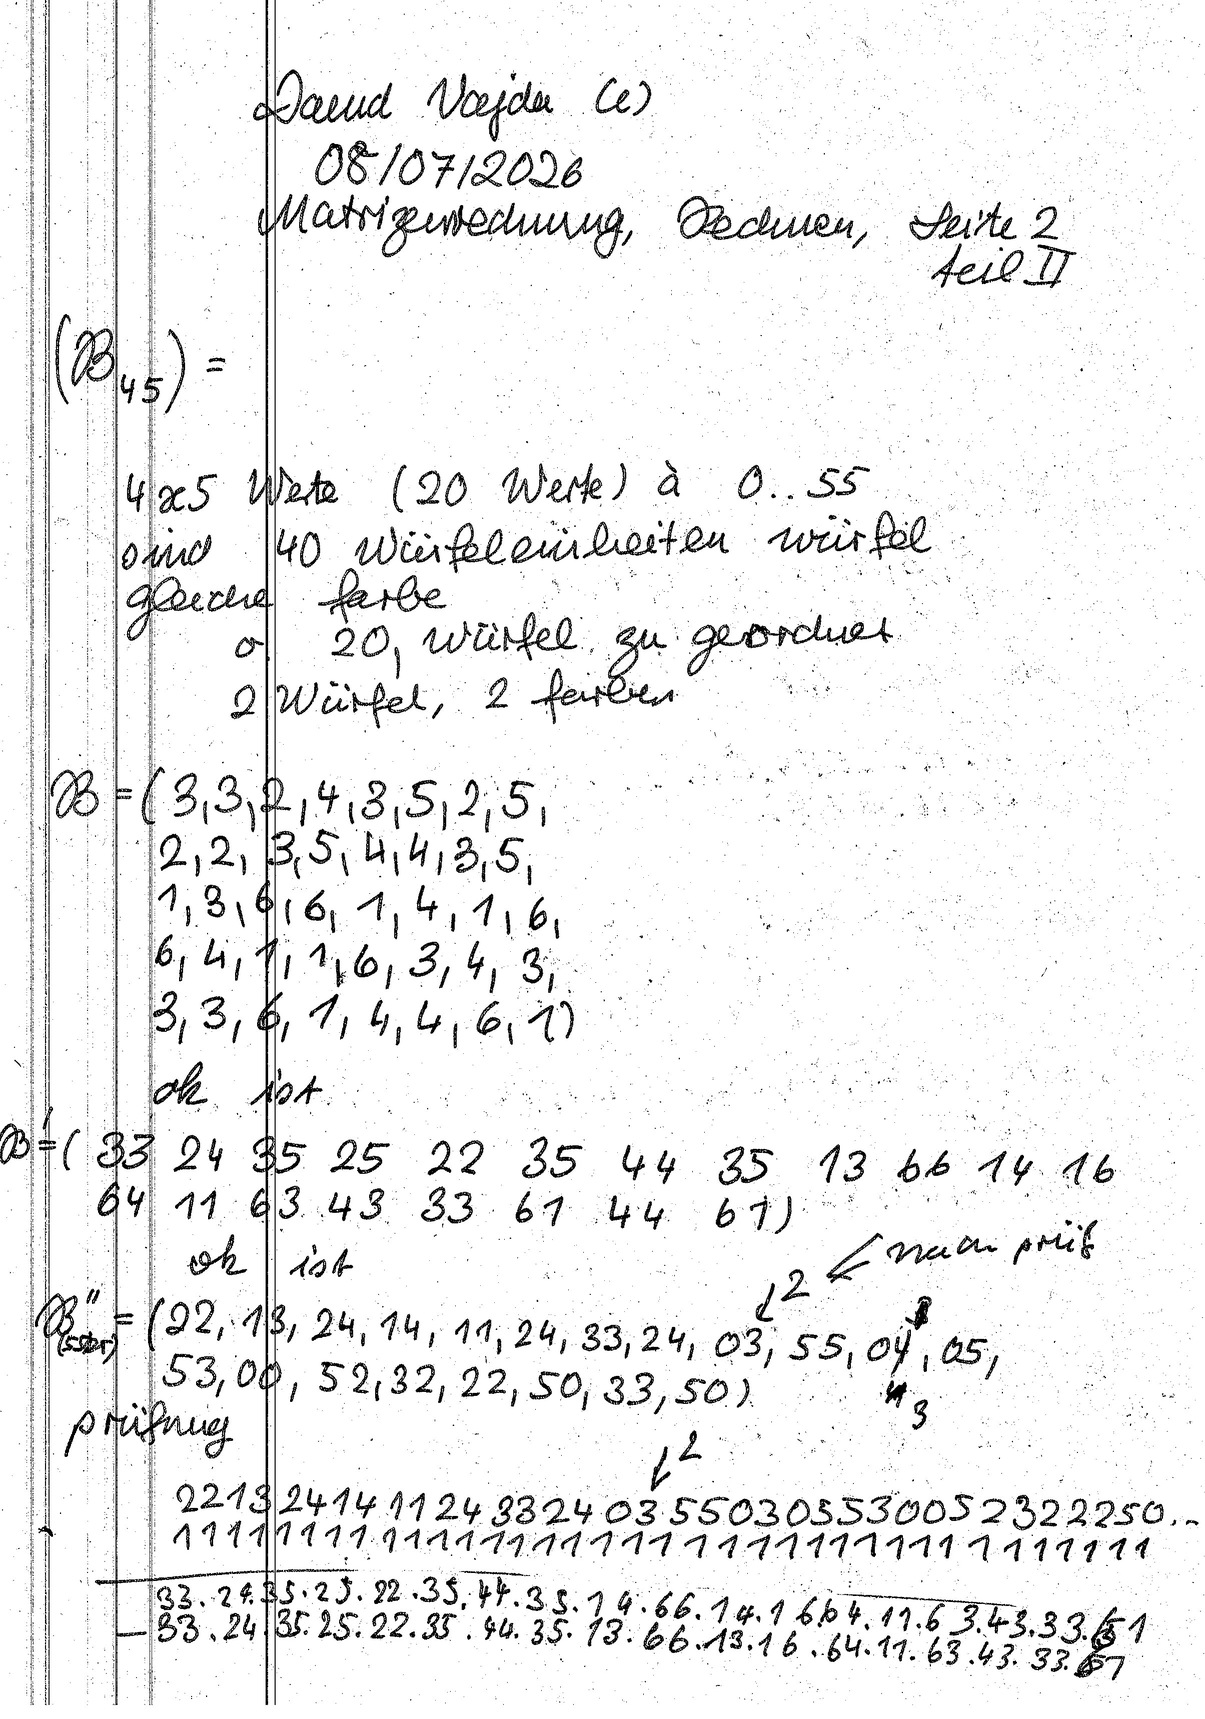 David Vajda (e)
08/07/2026
Matrizenrechnung, Rechnen, Seite 2
Teil II
(B45) =
4x5 Werte (20 Werte) à 0..55
sind 40 Würfeleinheiten würfel
gleiche farbe
o 20, würfel zu geordnet
2 Würfel, 2 farben
B = ( 3,3,2,4,3,5,2,5,
2,2,3,5,4,4,3,5,
1,3,6,6,1,4,1,6,
6,4,1,1,6,3,4,3,
3,3,6,1,4,4,6,1)
ok ist
B' = ( 33 24 35 25 22 35 44 35 13 66 14 16
64 11 63 43 33 61 44 61)
ok ist
nach prüf
2
B'' = (22, 13, 24, 14, 11, 24, 33, 24, 03, 55, 04, 05,
53, 00, 52, 32, 22, 50, 33, 50)
3
prüfung
2
221324141124332403550305530052322250...
111111111111111111111111111111111111
33.24.35.25.22.35.44.35.14.66.14.16 64.11.63.43.33.61
— 33.24.35.25.22.35.44.35.13.66.13.16.64.11.63.43.33.61